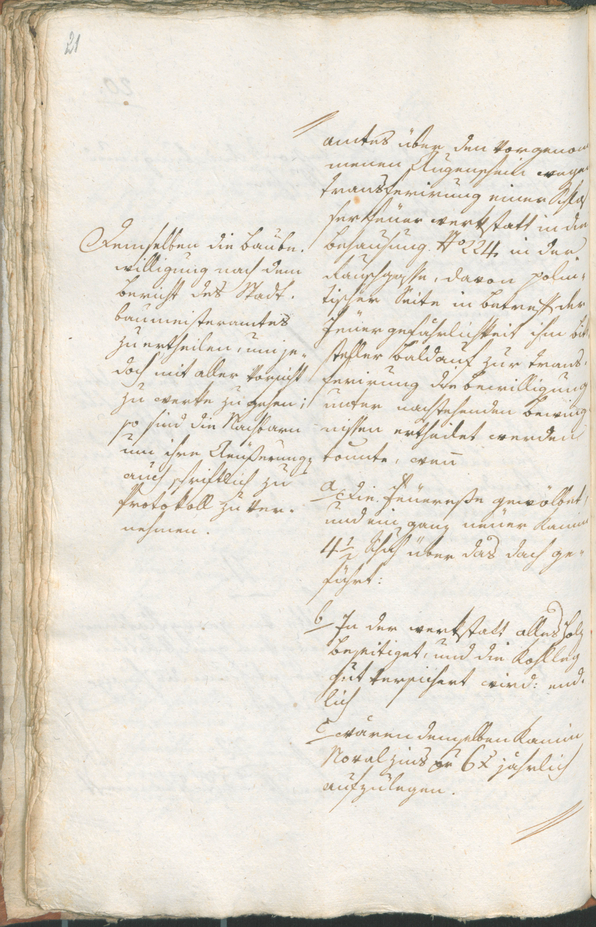 21
Demselben die Baube-
willigung nach dem
Bericht des Stadt-
baumeisteramtes
zu ertheilen, um je-
doch mit aller Vorsicht
zu werke zu gehen;
so sind die Nachbarn
um ihre Äußerung
auch schriftlich zu
Protokoll zu ver-
nehmen.
amtes über den vorgenom
menen Augenschein wegen
transferirung einer Schlos
serfeuerwerkstatt in die
behausung No 224 in der
Rauschgasse, davon polizei-
tischer Seite in betreff der
Feuergefährlichkeit ihm bit
steller Baldauf zur trans-
ferirung die bewilligung
unter nachstehenden beding
nissen ertheilet werden
könnte, wenn
a. Die Feueresse gewölbet,
und ein ganz neuer Kamin
4 1/2 Schuh über das dach ge-
führt:
b In der werkstatt alles Holz
beseitiget, und die
gut versichert wird: end-
lich
c wären demselben Kamin
zins pr 6 x jährlich
aufzulegen.